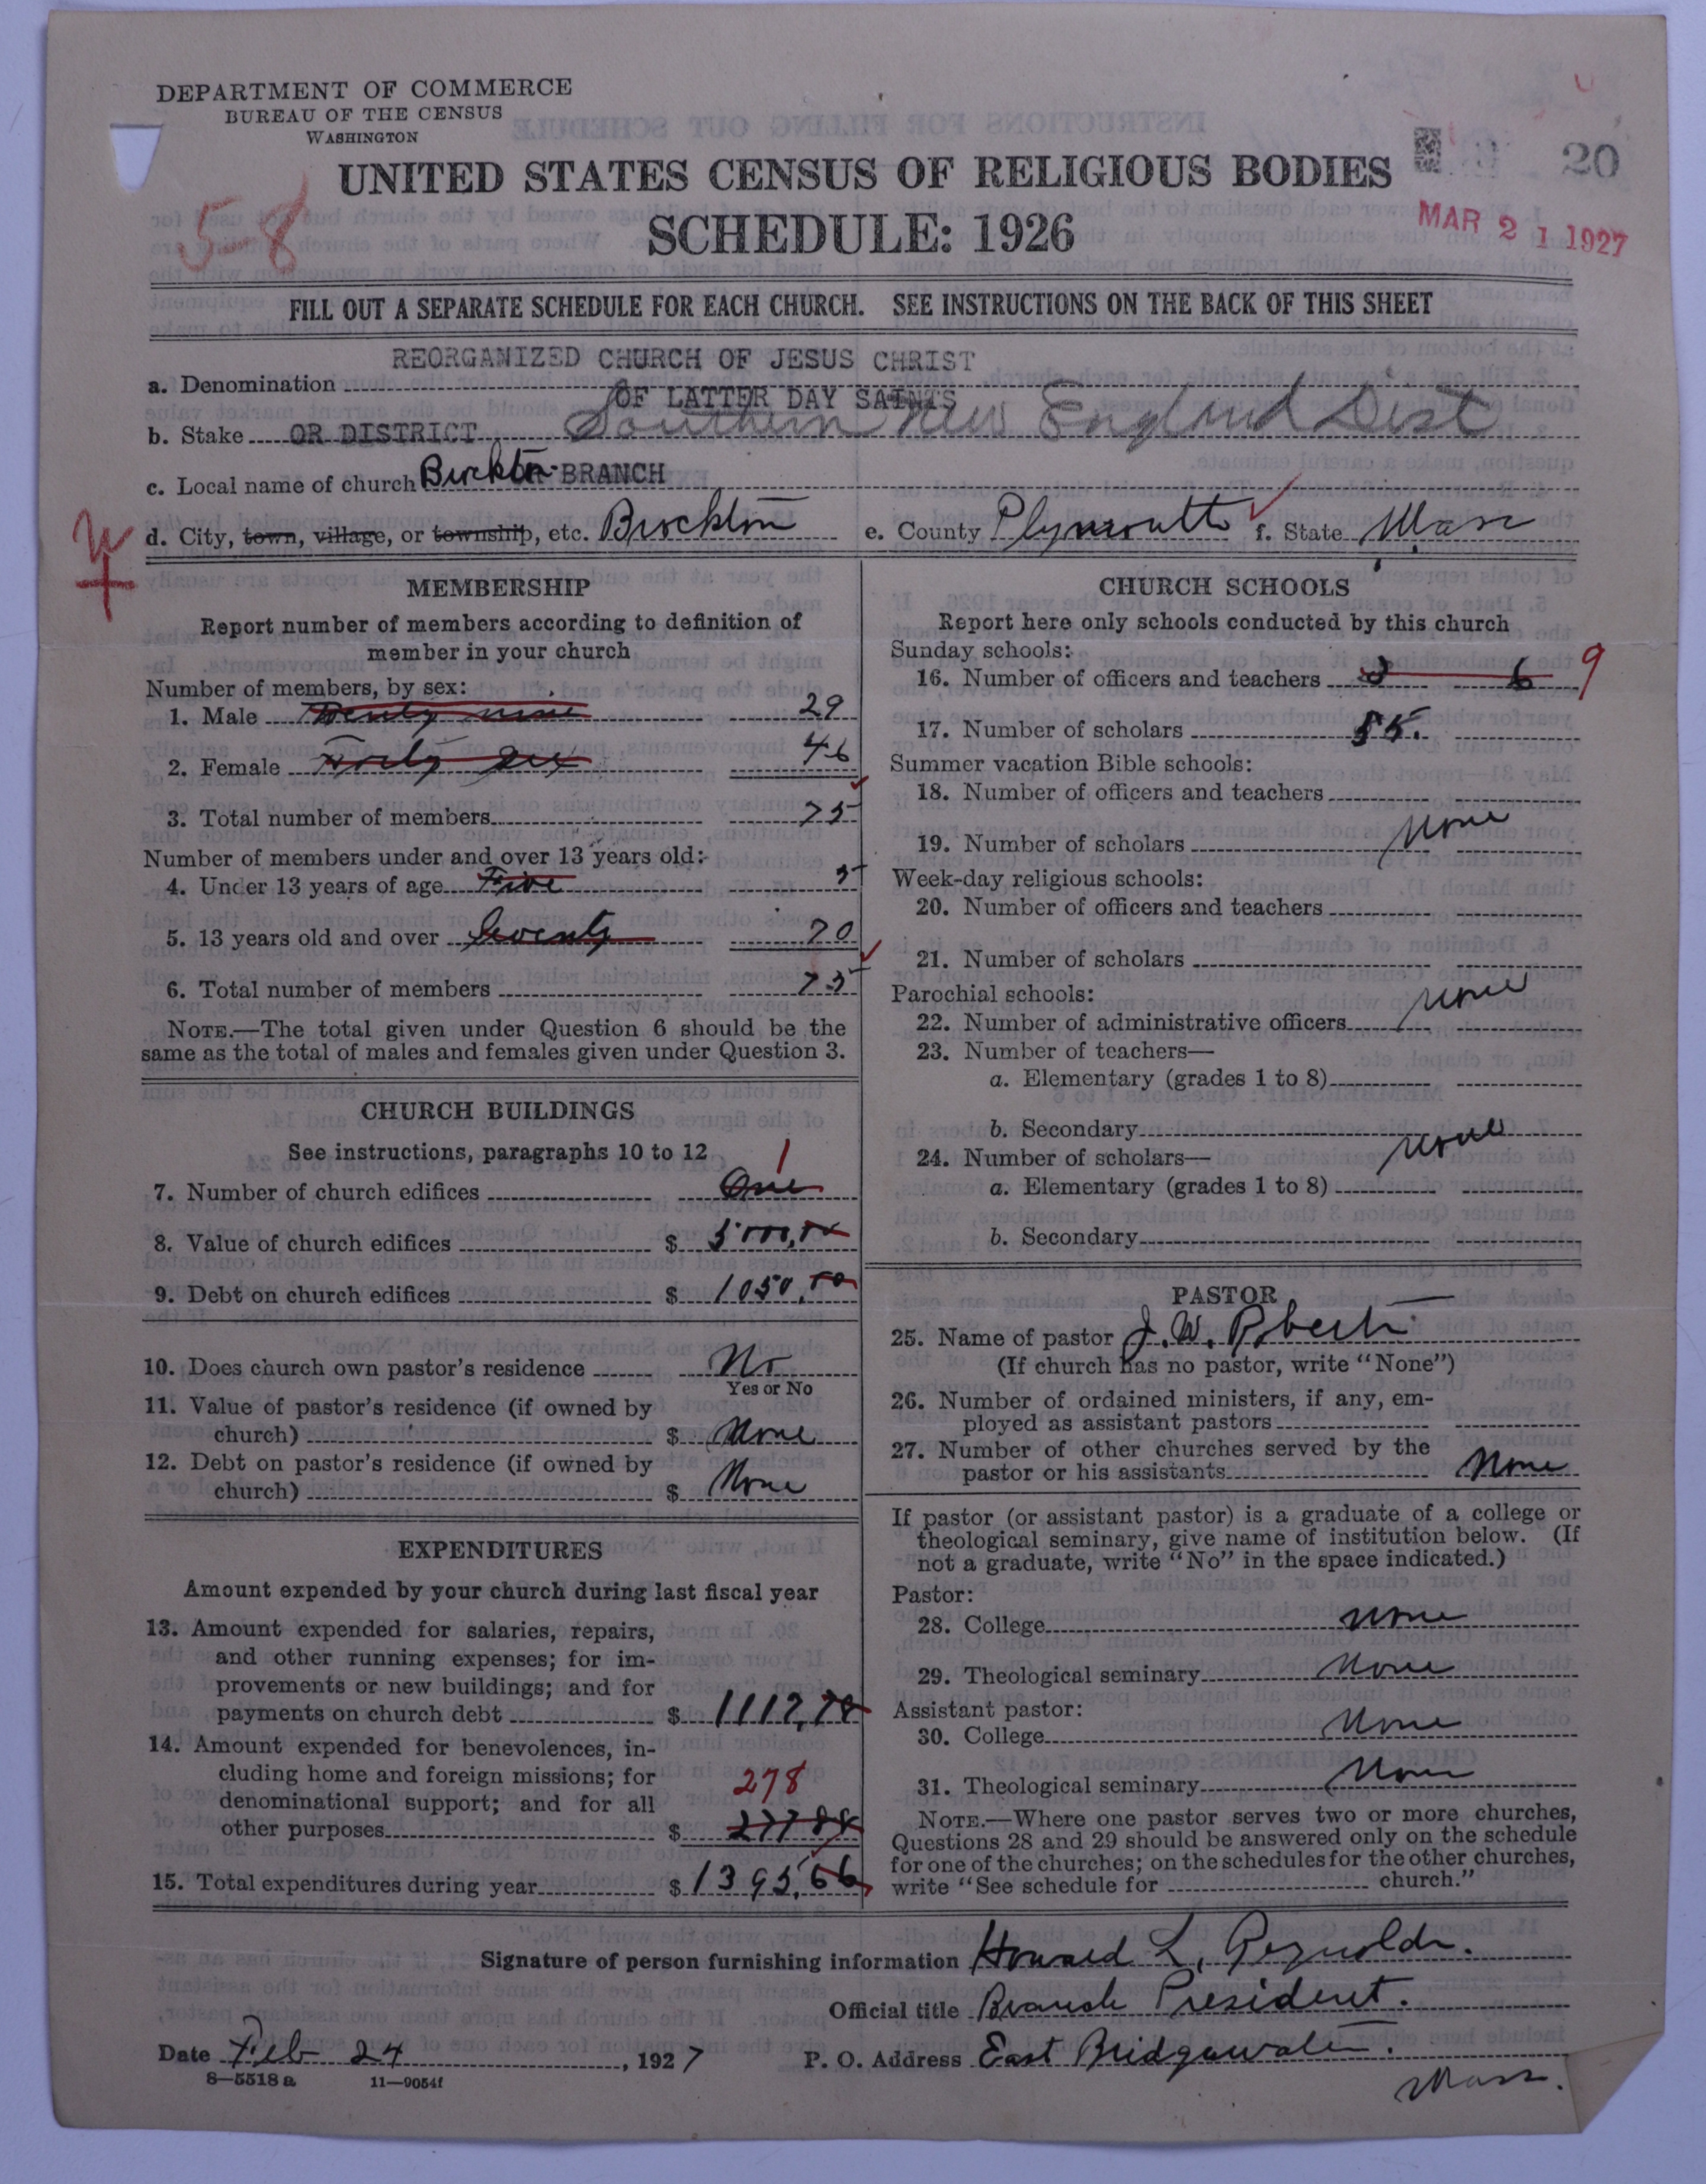 DEPARTMENT OF COMMERCE
BUREAU OF THE CENSUS
WASHINGTON
UNITED STATES CENSUS OF RELIGIOUS BODIES
SCHEDULE: 1926
20
MAR 21 1927
5-8
FILL OUT A SEPARATE SCHEDULE FOR EACH CHURCH. SEE INSTRUCTIONS ON THE BACK OF THIS SHEET
REORGANIZED CHURCH OF JESUS CHRIST
a. Denomination
OF LATTER DAY SAINTS
b. Stake OR DISTRICT Southern New England Dist
c. Local name of church Brockton BRANCH
d. City, town, village, or township, etc. Brockton e. County Plymouth f. State Mass
MEMBERSHIP
Report number of members according to definition of
member in your church
Number of members, by sex:
1. Male Twenty nine 29
2. Female Forty six 46
3. Total number of members 75
Number of members under and over 13 years old:
4. Under 13 years of age Five 5
5. 13 years old and over Seventy 70
6. Total number of members 75
NOTE.—The total given under Question 6 should be the
same as the total of males and females given under Question 3.
CHURCH BUILDINGS
See instructions, paragraphs 10 to 12
1
7. Number of church edifices One
8. Value of church edifices $ 5000,00
9. Debt on church edifices $ 1050,00
10. Does church own pastor's residence No
Yes or No
11. Value of pastor's residence (if owned by
church) $ None
12. Debt on pastor's residence (if owned by
church) $ None
EXPENDITURES
Amount expended by your church during last fiscal year
13. Amount expended for salaries, repairs,
and other running expenses; for im-
provements or new buildings; and for
payments on church debt $ 1117,78
14. Amount expended for benevolences, in-
cluding home and foreign missions; for
278
denominational support; and for all
other purposes $ 277 88
15. Total expenditures during year $ 1395,66
CHURCH SCHOOLS
Report here only schools conducted by this church
Sunday schools:
16. Number of officers and teachers 6 9
17. Number of scholars
Summer vacation Bible schools:
18. Number of officers and teachers
19. Number of scholars None
Week-day religious schools:
20. Number of officers and teachers
21. Number of scholars
Parochial schools:
none
22. Number of administrative officers
23. Number of teachers—
a. Elementary (grades 1 to 8)
b. Secondary
24. Number of scholars— none
a. Elementary (grades 1 to 8)
b. Secondary
PASTOR
25. Name of pastor J. W.
(If church has no pastor, write "None")
26. Number of ordained ministers, if any, em-
ployed as assistant pastors
27. Number of other churches served by the
pastor or his assistants None
If pastor (or assistant pastor) is a graduate of a college or
theological seminary, give name of institution below. (If
not a graduate, write "No" in the space indicated.)
Pastor:
28. College none
29. Theological seminary None
Assistant pastor:
30. College None
31. Theological seminary None
NOTE.—Where one pastor serves two or more churches,
Questions 28 and 29 should be answered only on the schedule
for one of the churches; on the schedules for the other churches,
write "See schedule for church."
Signature of person furnishing information Howard L. Reynolds.
Official title Branch President.
Date Feb 24, 1927 P. O. Address East Bridgewater.
Mass.
8—5518 a 11—9054f